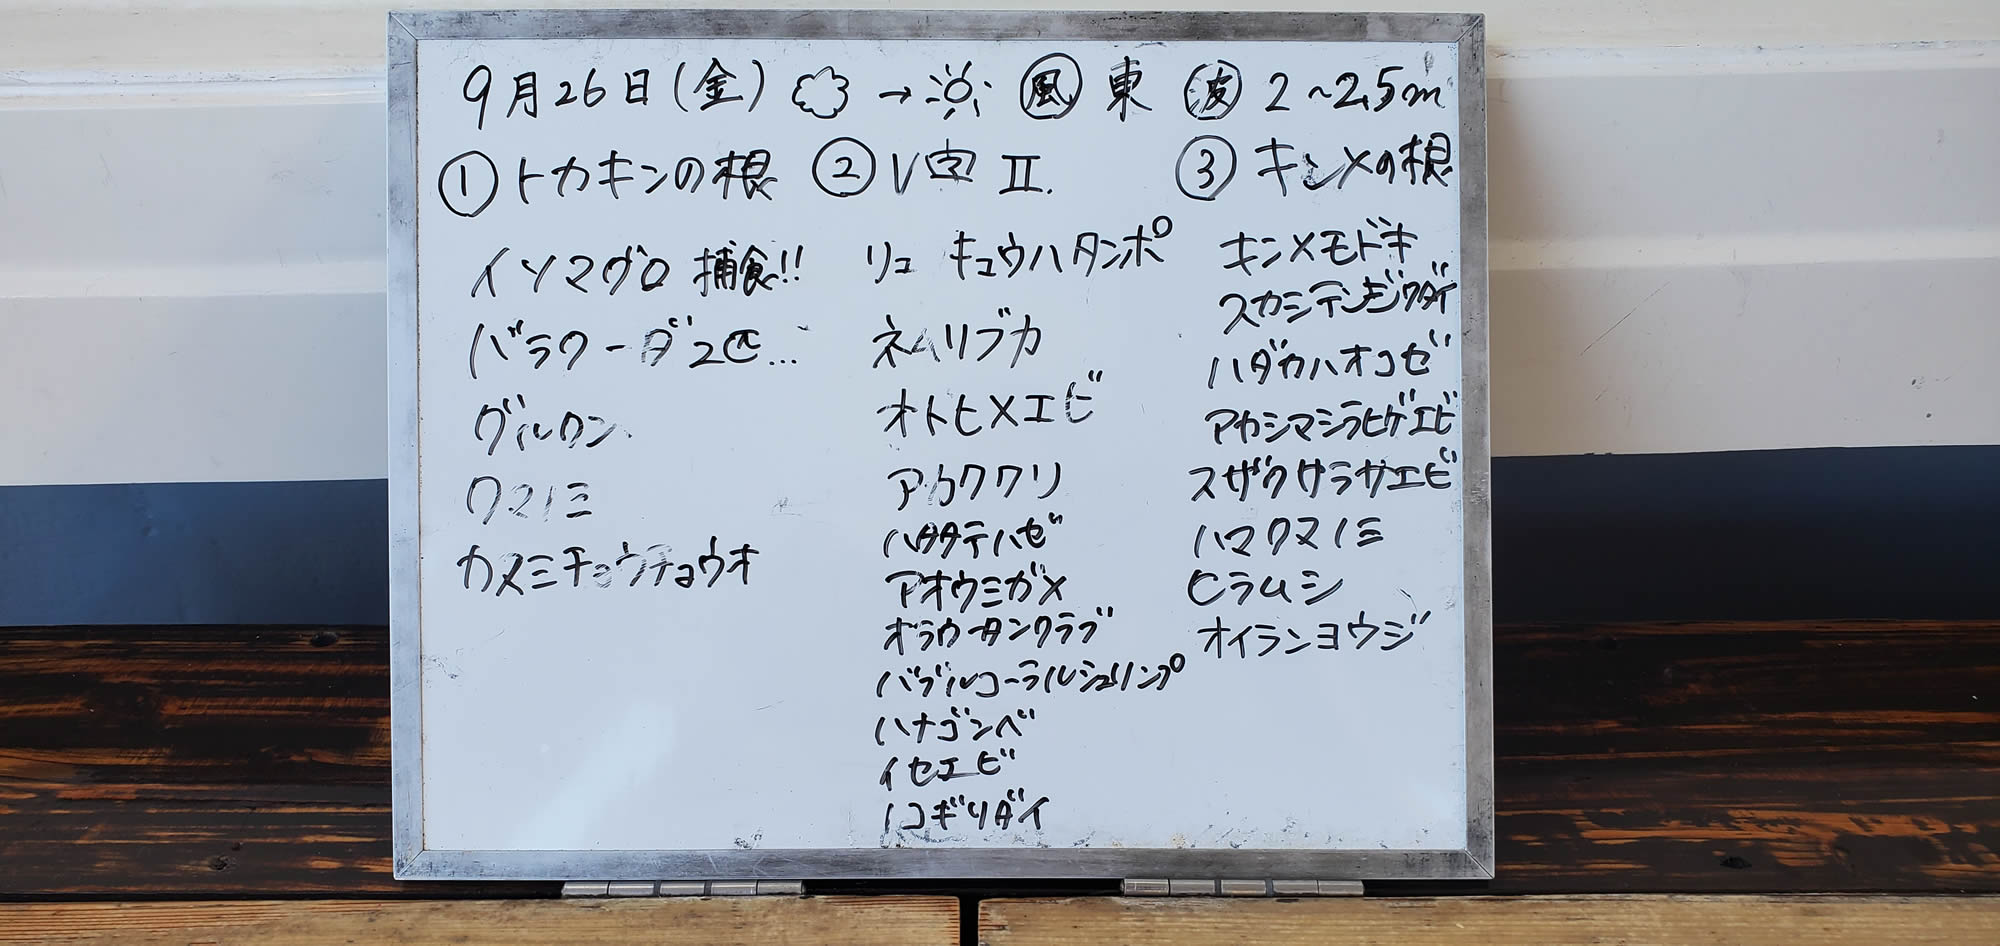 9月26日(金) → 風 東 波 2~2.5m
① トカキンの根
イソマグロ 捕食!!
バラクーダ2匹...
グルクン
クマノミ
カスミチョウチョウオ
② V字 II.
リュウキュウハタンポ
ネムリブカ
オトヒメエビ
アカククリ
ハタタテハゼ
アオウミガメ
オラウータンクラブ
バブルコーラルシュリンプ
ハナゴンベ
イセエビ
ノコギリダイ
③ キンメの根
キンメモドキ
スカシテンジクダイ
ハダカハオコゼ
アカシマシラヒゲエビ
スザクサラサエビ
ハマクマノミ
ヒラムシ
オイランヨウジ